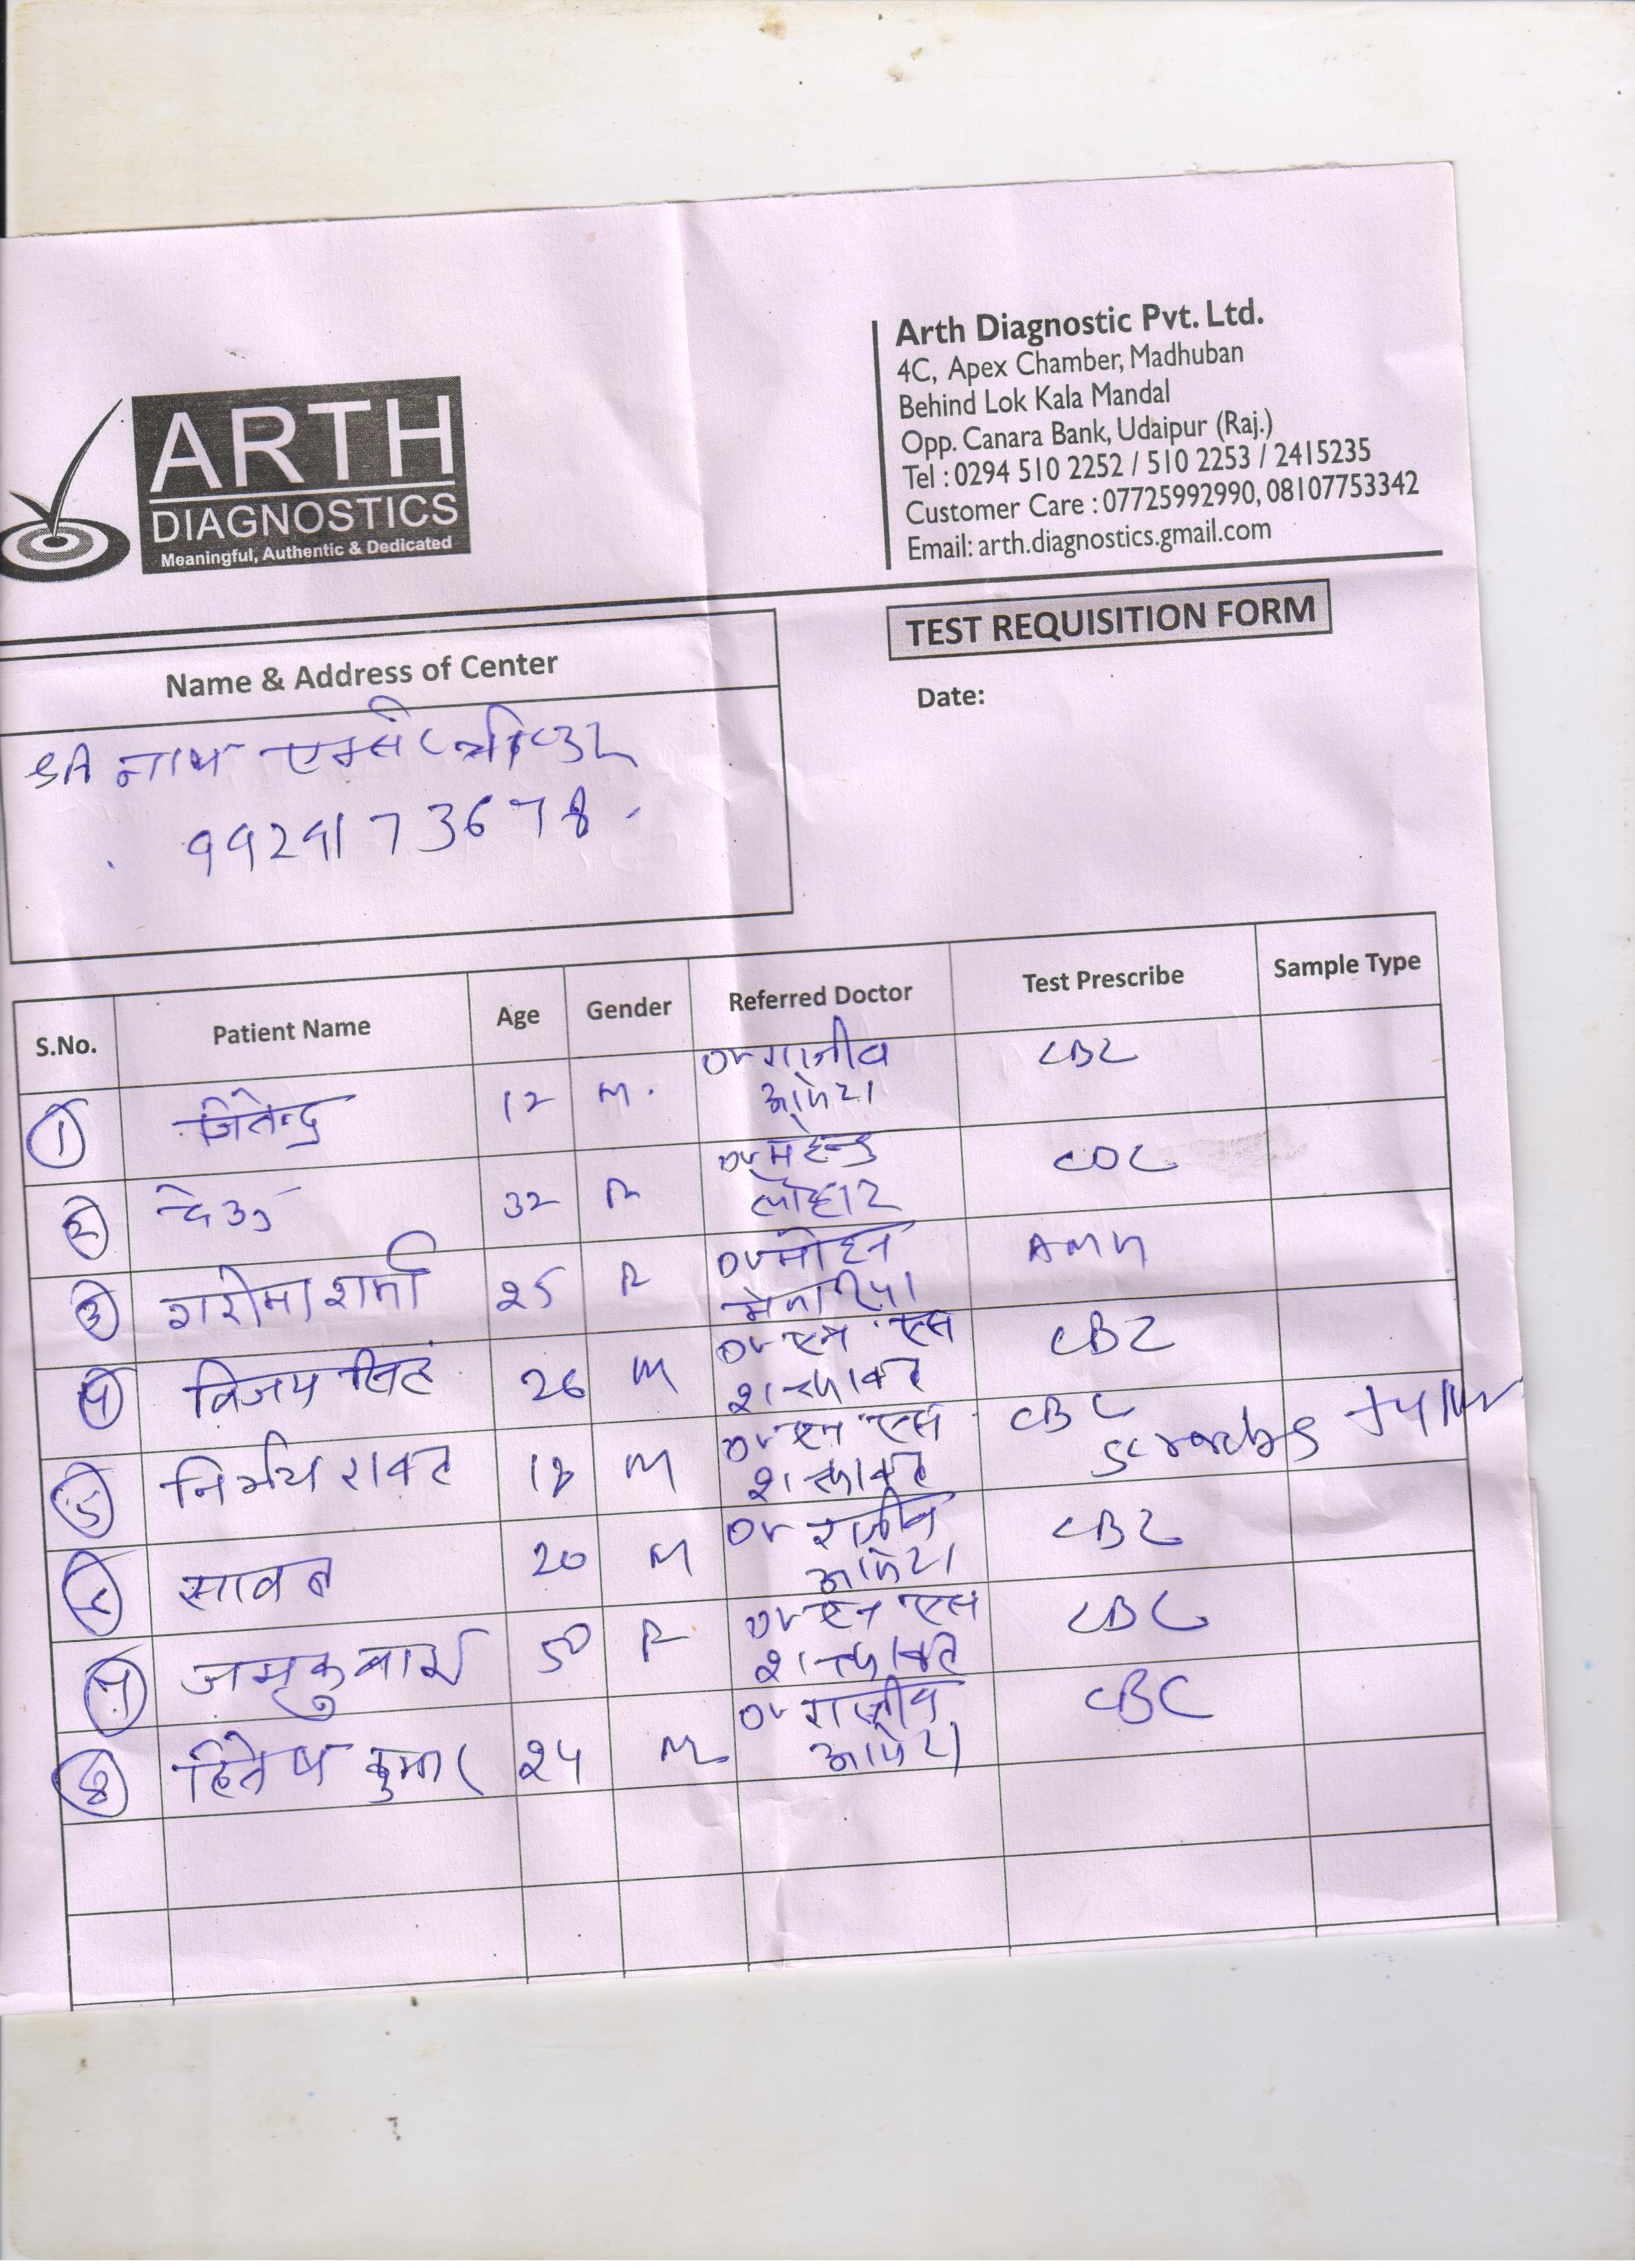 ARTH
DIAGNOSTICS
Meaningful, Authentic & Dedicated
Arth Diagnostic Pvt. Ltd.
4C, Apex Chamber, Madhuban
Behind Lok Kala Mandal
Opp. Canara Bank, Udaipur (Raj.)
Tel : 0294 510 2252 / 510 2253 / 2415235
Customer Care : 07725992990, 08107753342
Email: arth.diagnostics.gmail.com
TEST REQUISITION FORM
Date:
Name & Address of Center
नाथ
S.No. Patient Name Age Gender Referred Doctor Test Prescribe Sample Type
1 जितेन्द्र 12 M. Dr राजीव CBC
2 32 F Dr महेन्द्र CBC
लोहार
3 शर्मा 25 F Dr मोहन AMH
4 विजय सिंह 26 M Dr एन एस CBC
शक्तावत
5 निर्भय रावत 18 M Dr एन एस CBC
शक्तावत
6 सावन 20 M Dr राजीव CBC
7 50 F Dr एन एस CBC
शक्तावत
8 हितेष कुमार 24 M Dr राजीव CBC